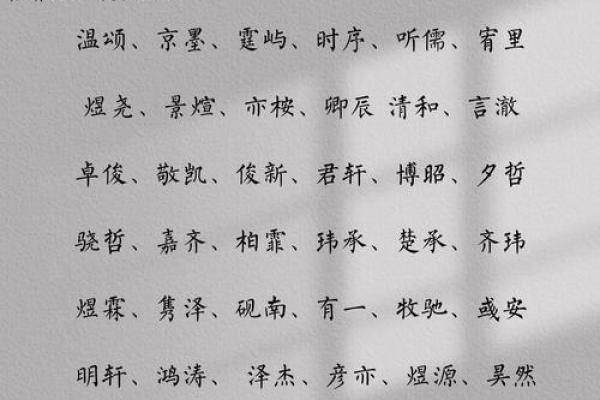 温颂、京墨、霆屿、时序、听儒、宥里
煜尧、景煊、亦桉、卿辰 清和、言澈
卓俊、敬凯、俊新、君轩、博昭、夕哲
骁哲、嘉齐、柏霏、玮承、楚承、齐玮
煜霖、隽泽、砚南、有一、牧驰、彧安
明轩、鸿涛、 泽杰、彦亦、煜源、昊然